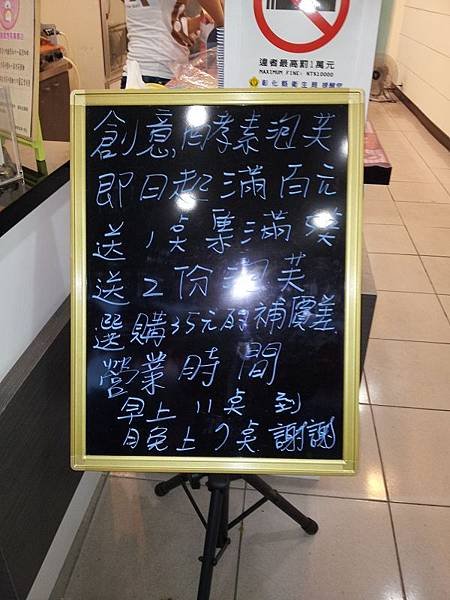 違者最高罰1萬元
MAXIMUM FINE: NT$10000
彰化縣衛生局 提醒您
創意酵素泡芙
即日起滿百元
送1点集滿5奌
送2份泡芙
選購35元的補價差
營業時間
早上11点到
晚上7点謝謝